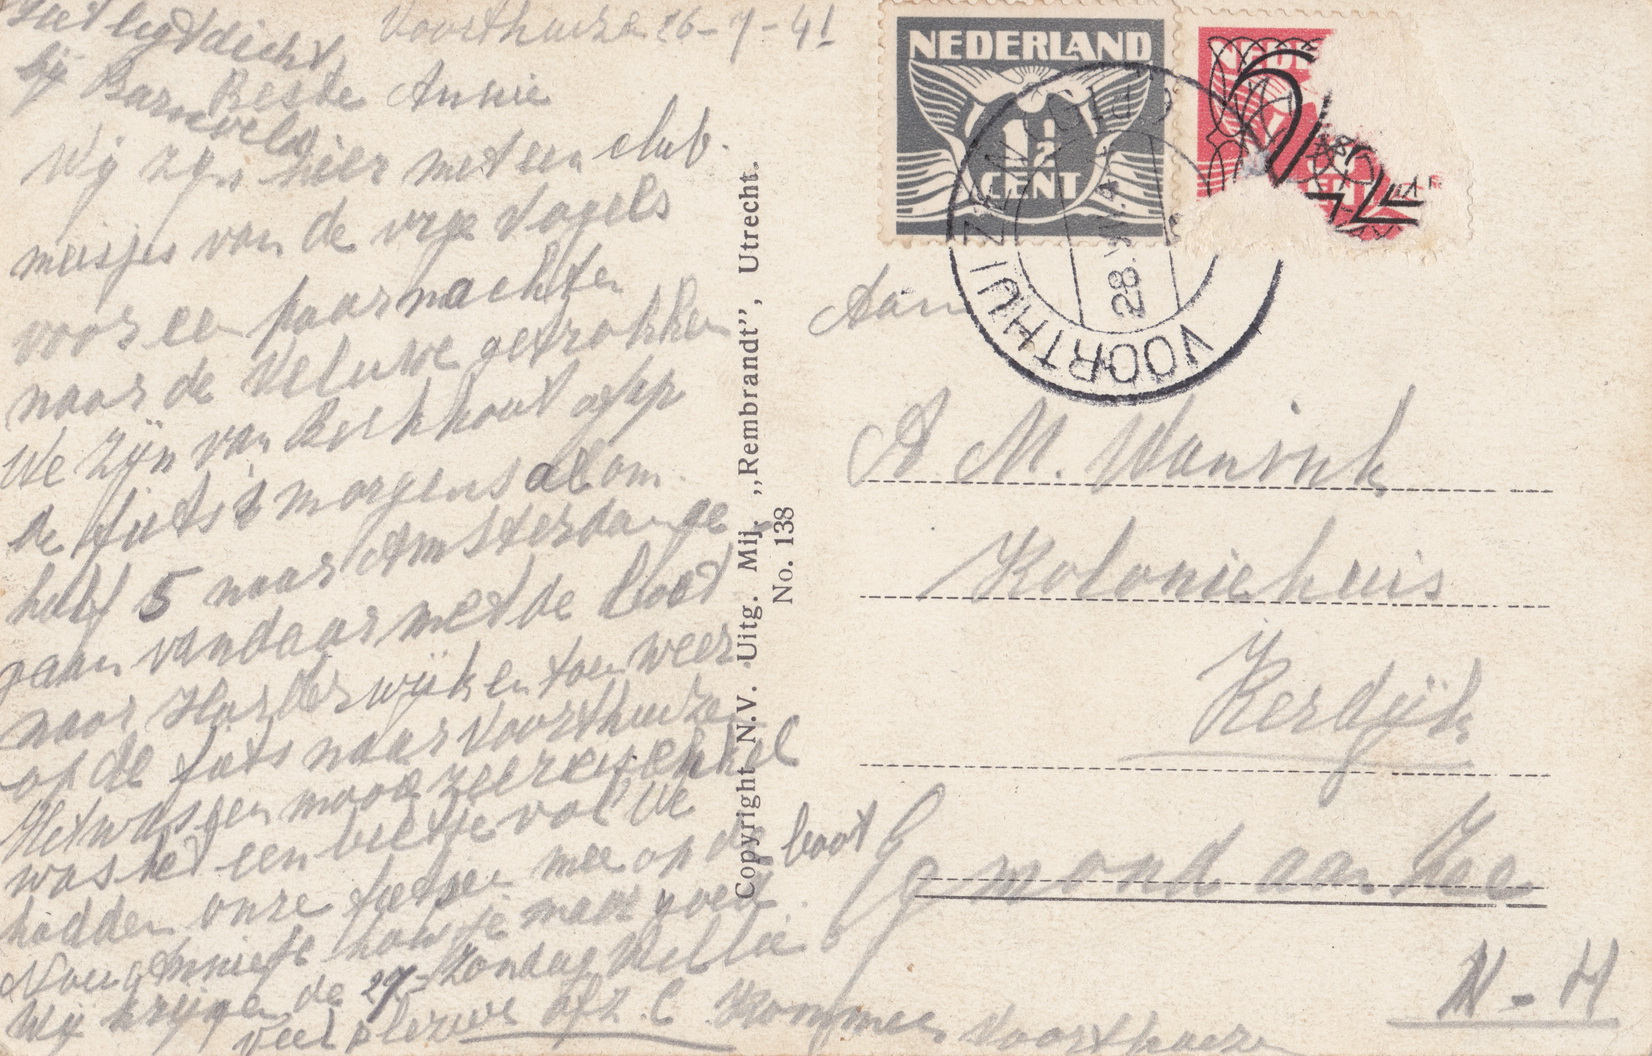 Het ligt dicht
bij Barneveld
Voorthuize 26-7-41
Beste Annie
Wij zijn hier met een club
meisjes van de vrije Vogels
voor een paar nachten
naar de Veluwe getrokken
We zijn van Berkhout op
de fiets 's morgens al om
half 5 naar Amsterdam ge
gaan vandaar met de boot
naar Harderwijk en toen weer
op de fiets naar Voorthuize
Het was een mooie zeereis enkel
was het een beetje vol We
hadden onze fietsen mee op de boot
Nou Annie hou je maar goed
Wij krijgen de 27 Zondag
veel plezier afz. C Kommer Voorthuize
Copyright N.V. Uitg. Mij. „Rembrandt”, Utrecht.
No. 138
NEDERLAND
1½
CENT
NEDE
VOORTHUIZEN
28.
Aan
A. M.
Koloniehuis
Kerdijk
Egmond aan Zee
N-H